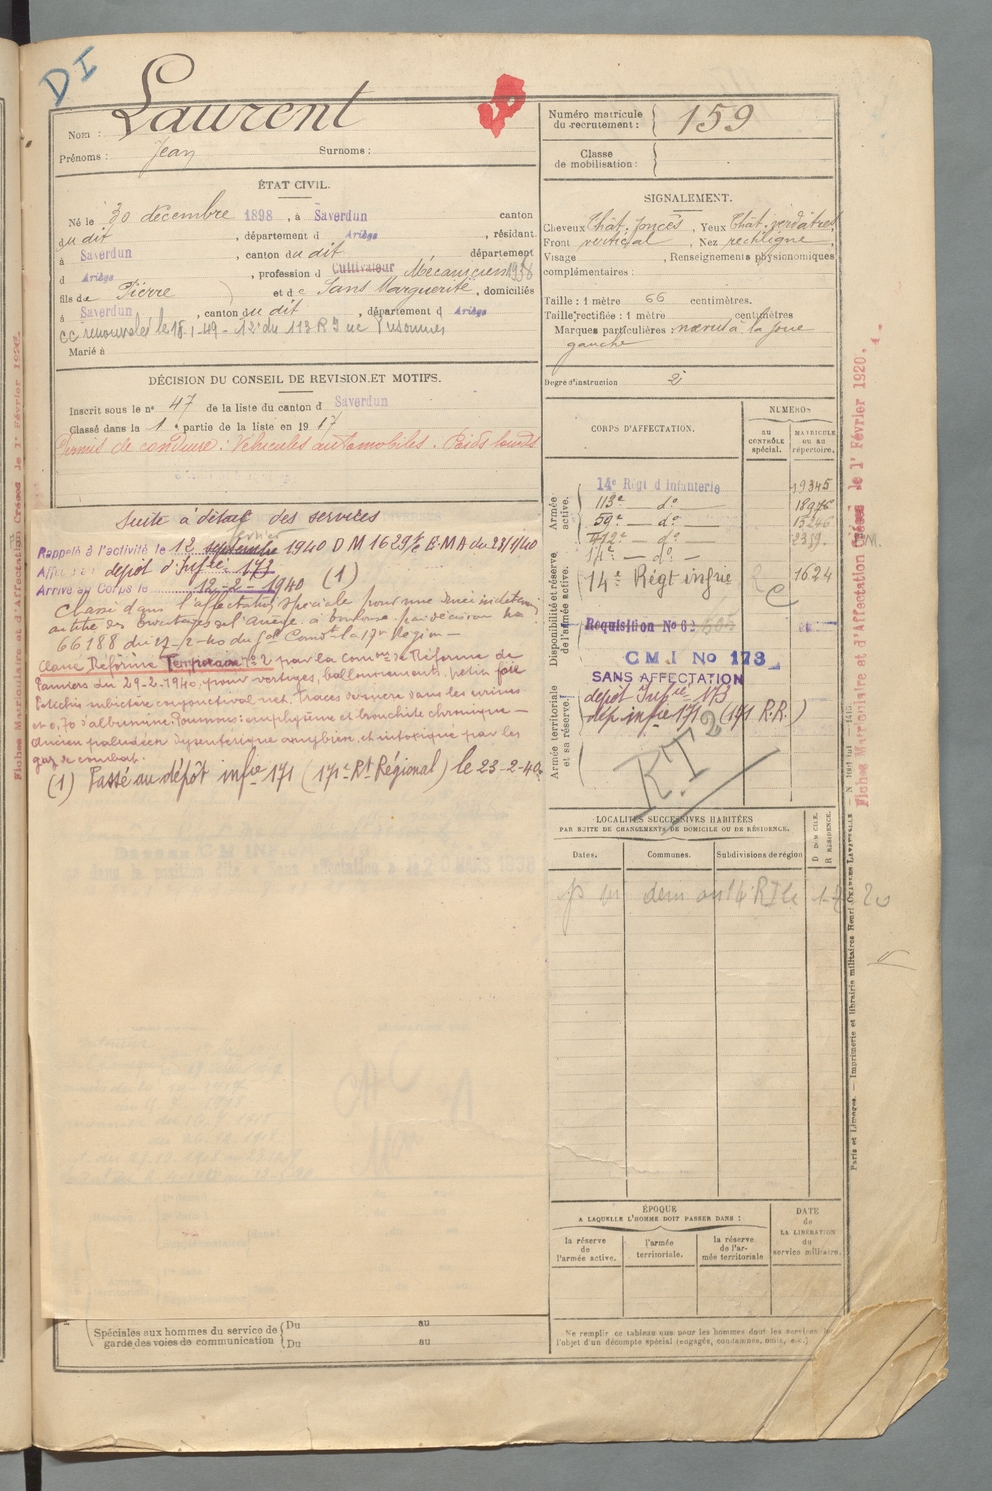 DI
Laurent
Nom :
Prénoms : Jean Surnoms :
Numéro matricule du recrutement : 159
Classe de mobilisation :
ÉTAT CIVIL.
Né le 30 décembre 1898, à Saverdun canton
du dit, département d Ariège, résidant
à Saverdun, canton du dit, département
d Ariège, profession d Cultivateur Mécanicien 1938
fils de Pierre et de Sans Marguerite, domiciliés
à Saverdun, canton du dit, département d Ariège
cc renouvelés le 18-1-49
Marié à
DÉCISION DU CONSEIL DE REVISION ET MOTIFS.
Inscrit sous le n° 47 de la liste du canton d Saverdun
Classé dans la 1e partie de la liste en 1917
Permis de conduire : Véhicules automobiles. Poids lourds
Suite à détail des services
Rappelé à l'activité le 12 septembre février 1940 D M 1629 E.M.A du 23/1/40
Affecté dépôt d'Infie 173
Arrivé au Corps le 12-2-1940 (1)
Classé dans l'affectation spéciale pour une durée indéterminée
au titre des
66188 du 27-2-40 du Gal Comdt la 17e Région
Classé Réforme Temporaire n° 2 par la Comon de Réforme de
Pamiers du 29-2-1940, pour vertiges, ballonnements, petit foie
conjonctival net. Traces de sucre dans les urines
et 0,70 d'albumine. Poumons : emphysème et bronchite chronique —
Ancien paludéen dysentérique amybien, et intoxiqué par les
gaz de combat.
(1) Passé au dépôt infie 171 (171e Rt Régional) le 23-2-40.
Spéciales aux hommes du service de garde des voies de communication
Du au
Du au
SIGNALEMENT.
Cheveux Chât. foncés, Yeux Chât. verdâtres
Front vertical, Nez rectiligne,
Visage , Renseignements physionomiques
complémentaires :
Taille : 1 mètre 66 centimètres.
Taille rectifiée : 1 mètre centimètres
Marques particulières : nœvus à la joue
gauche
Degré d'instruction 2
CORPS D'AFFECTATION.
NUMÉROS
AU CONTRÔLE spécial.
MATRICULE OU AU répertoire.
Armée active.
14e Régt d'Infanterie 19345
113e — do — 18976
59e — do — 15246
412e — do — 2339.
14e — do —
Disponibilité et réserve de l'armée active.
14e Régt infrie 1624
Réquisition No 62
C M I No 173
SANS AFFECTATION
Armée territoriale et sa réserve.
dépôt Infie 173
dép infie 171 (171 R.R.)
RT 2
LOCALITÉS SUCCESSIVES HABITÉES
PAR SUITE DE CHANGEMENTS DE DOMICILE OU DE RÉSIDENCE.
D DOMICILE.
R RÉSIDENCE.
Dates. Communes. Subdivisions de région
ÉPOQUE
A LAQUELLE L'HOMME DOIT PASSER DANS :
la réserve de l'armée active.
l'armée territoriale.
la réserve de l'armée territoriale
DATE de LA LIBÉRATION du service militaire.
Ne remplir ce tableau que pour les hommes dont les services
l'objet d'un décompte spécial (engagés, condamnés, omis, etc.)
Fiches Matriculaire et d'Affectation Créées le 1er Février 1920.
Paris et Limoges. — Imprimerie et librairie militaires Henri CHARLES-LAVAUZELLE